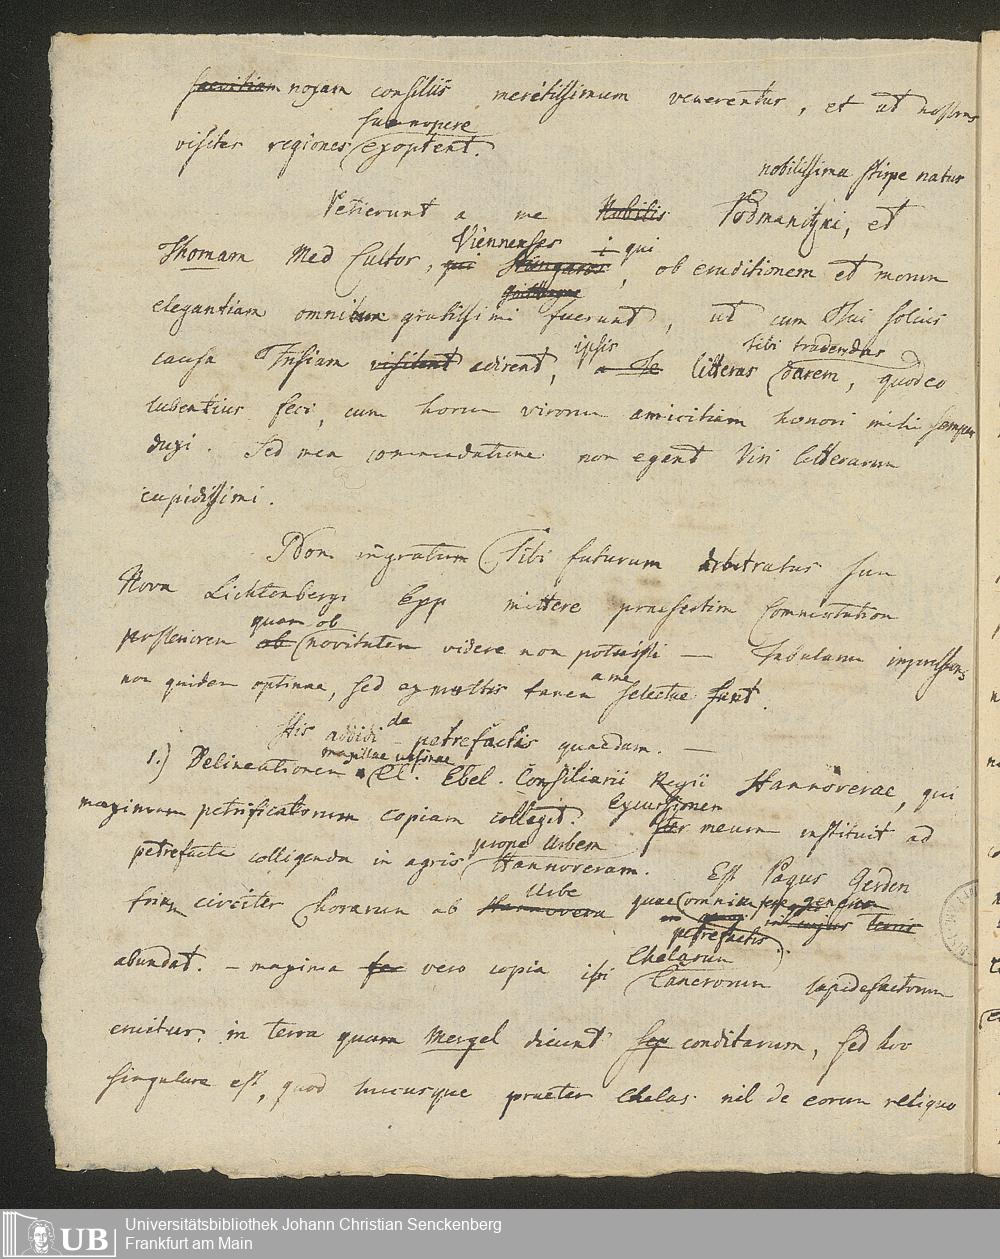 saevitiam novam consiliis meretissimum venerentur, et ut nostras
summopere
visites regiones exoptent.
nobilissima stirpe natus
Petierunt a me Nobilis Podmanitzki, et
Viennenses i qui
Thomam Med Cultor, qui Hungarus, ob eruditionem et morum
elegantiam omnibus gratissimi fuerunt, ut cum Tui solius
ipsis Tibi tradendas
causa adirent, a Te litteras darem, quod eo
lubentius feci, cum horum virorum amicitiam honori mihi semper
duxi. Sed mea commendatione non egent Viri litterarum
cupidissimi.
Non ingratum Tibi futurum arbitratus sum
Nova Lichtenbergi Epp mittere praesertim Commentation
quam ob
posteriorem ob novitatem videre non potuisti — Tabularum impressiones
a me
non quidem optimae, sed ex multis tamen selectae sunt.
de
His addidi petrefactis quaedam. —
maxillae ursinae
1.) Delineationem Cl. Ebel. Consiliarii Regii Hannoverae, qui
maximam petrificatorum copiam collegit. Excursionem
Iter meum instituit ad
prope Urbem
petrefacta colligenda in agris Hannoveram. Est Pagus Gerden
Urbe
circiter horarum ab Hannovera quae omnis fere generis
in cujus terris
petrefactis
abundat. — maxima vero copia ibi Chelarum
Cancrorum lapidefactorum
eruitur, in terra quam Mergel dicunt conditarum, sed hoc
singulare est, quod hucusque praeter Chelas nil de eorum reliquo
Universitätsbibliothek Johann Christian Senckenberg
UB Frankfurt am Main